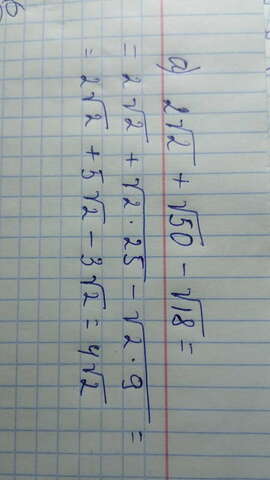 а) 2√2 + √50 - √18 =
= 2√2 + √2·25 - √2·9 =
= 2√2 + 5√2 - 3√2 = 4√2